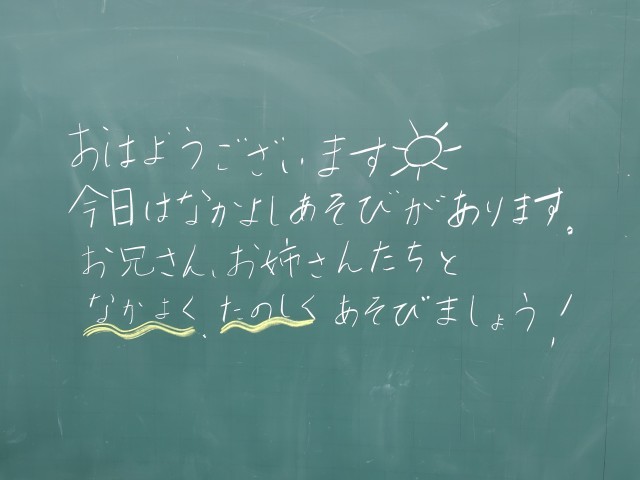 おはようございます
今日はなかよしあそびがあります。
お兄さん、お姉さんたちと
なかよく、たのしくあそびましょう!